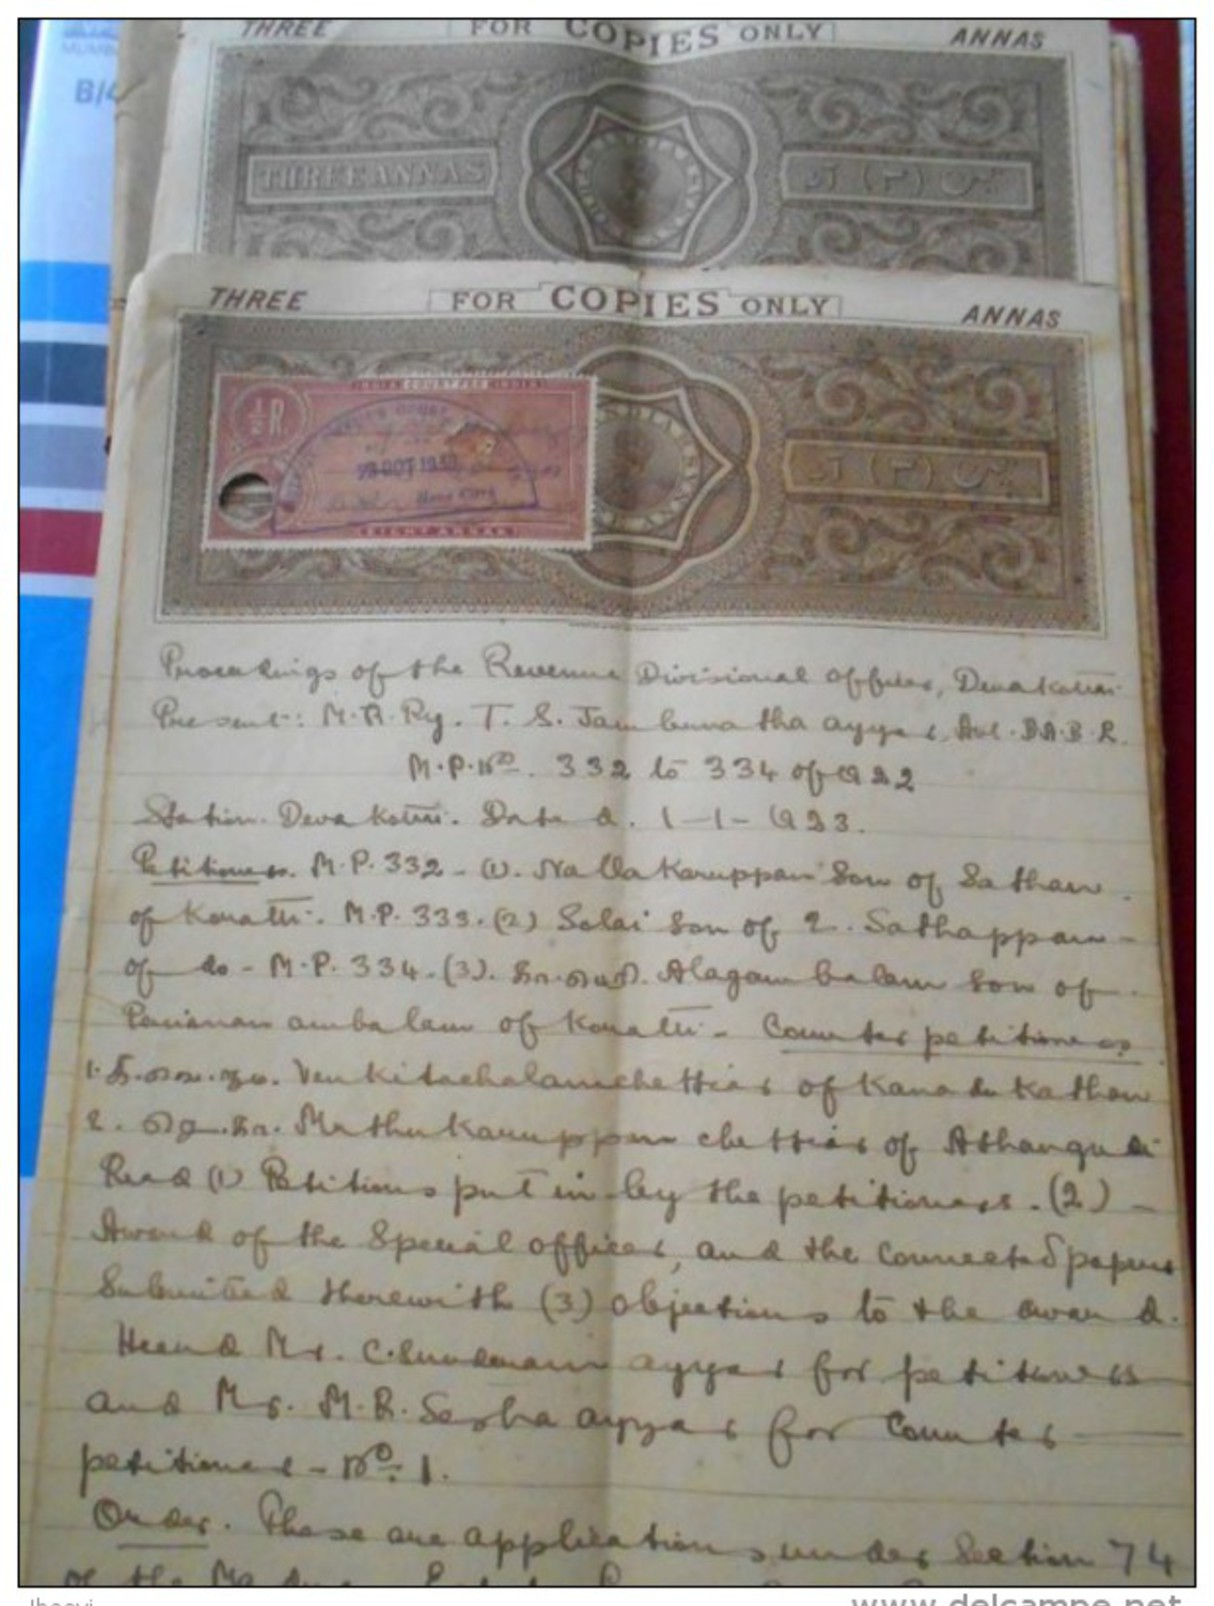 MUMB
B/4
THREE FOR COPIES ONLY ANNAS
THREE ANNAS
THREE FOR COPIES ONLY ANNAS
INDIA COURT FEE INDIA
½R
EIGHT ANNAS
Proceedings of the Revenue Divisional officer, Devakottai.
Present: M.R.Ry. T. S. Jambunatha ayyar, Avl. B.A.B.L.
M.P. No. 332 to 334 of 1922
Station. Devakottai. Dated. 1-1-1923.
Petitioners. M.P. 332 - (1). Nalla Karuppan Son of Sathan
of Konatti. M.P. 333. (2) Solai Son of Sathappan -
of do - M.P. 334. (3). Alagambalam Son of
ambalam of Konatti - Counter petitioners
1. Venkitachalamchettiar of Kanadukathan
2. Muthukaruppan chettiar of Athangudi
Read (1) Petitions put in by the petitioners. (2) -
Award of the Special officer, and the connected papers
Submitted therewith (3) objections to the award.
Heard Mr. C. Sundaram ayyar for petitioners
and Mr. M.R. Sesha ayyar for Counter
petitioner - No. 1.
Order. These are applications under Section 74
of the
www.delcampe.net